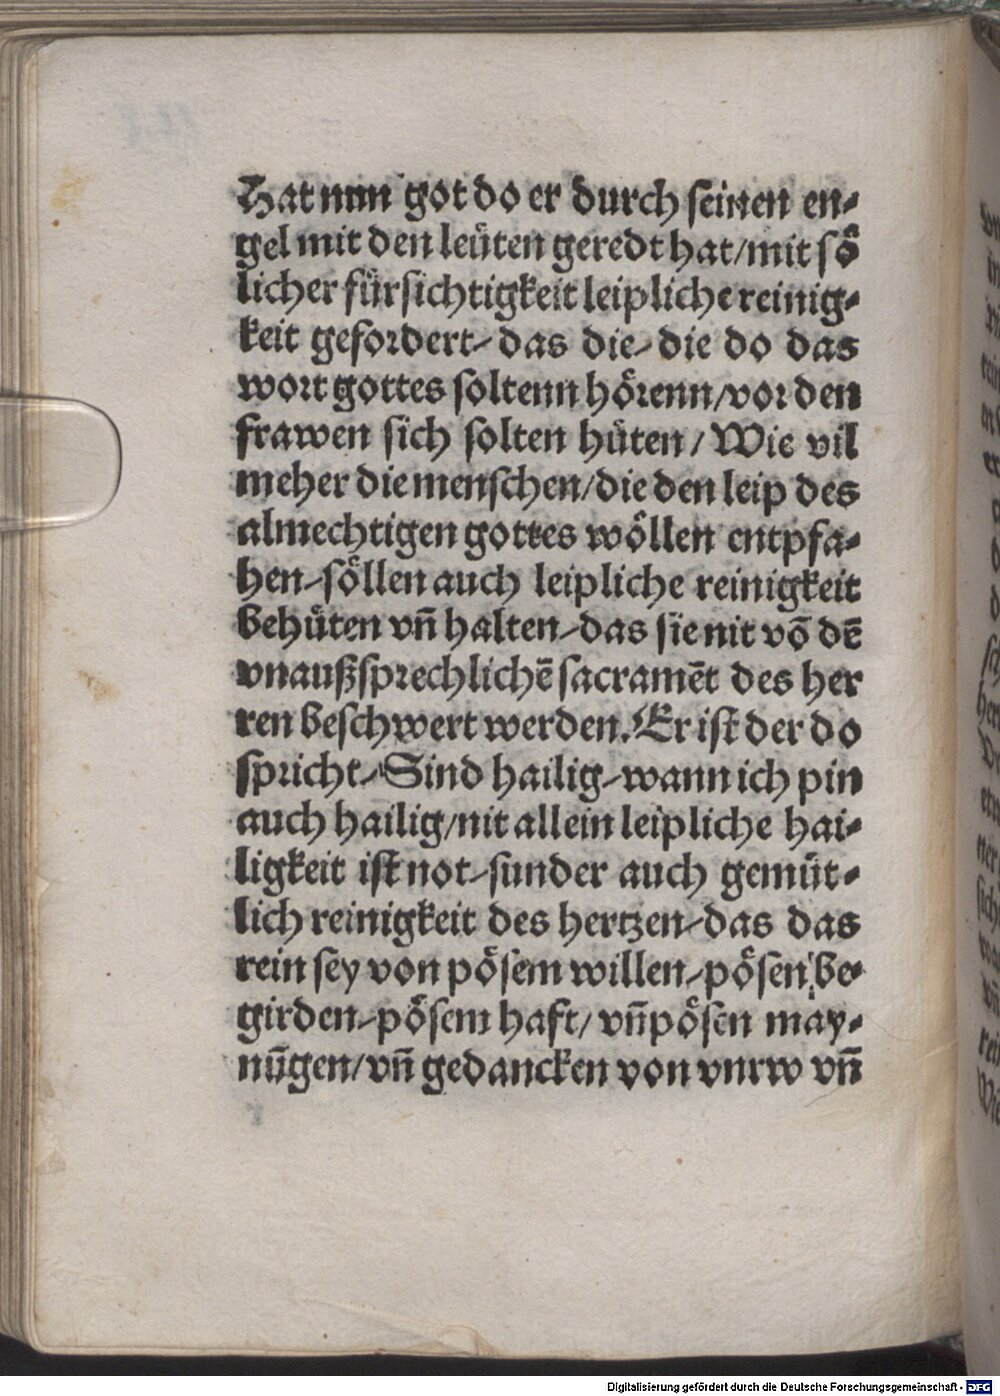 Hat nun got do er durch seinen en-
gel mit den leüten geredt hat/mit sö
licher fürsichtigkeit leipliche reinig-
keit gefordert/das die/die do das
wort gottes soltenn hörenn/vor den
frawen sich solten hüten/Wie vil
meher die menschen/die den leip des
almechtigen gottes wöllen entpfa-
hen/söllen auch leipliche reinigkeit
behüten vn̄ halten/das sie nit vō dē
vnaußsprechlichē sacramēt des her
ren beschwert werden. Er ist der do
spricht/Sind hailig/wann ich pin
auch hailig/nit allein leipliche hai-
ligkeit ist not/sunder auch gemüt-
lich reinigkeit des hertzen/das das
rein sey von pösem willen/pösen be-
girden/pösem haft/vn̄ pösen may-
nūgen/vn̄ gedancken von vnrw vn̄
Digitalisierung gefördert durch die Deutsche Forschungsgemeinschaft - DFG